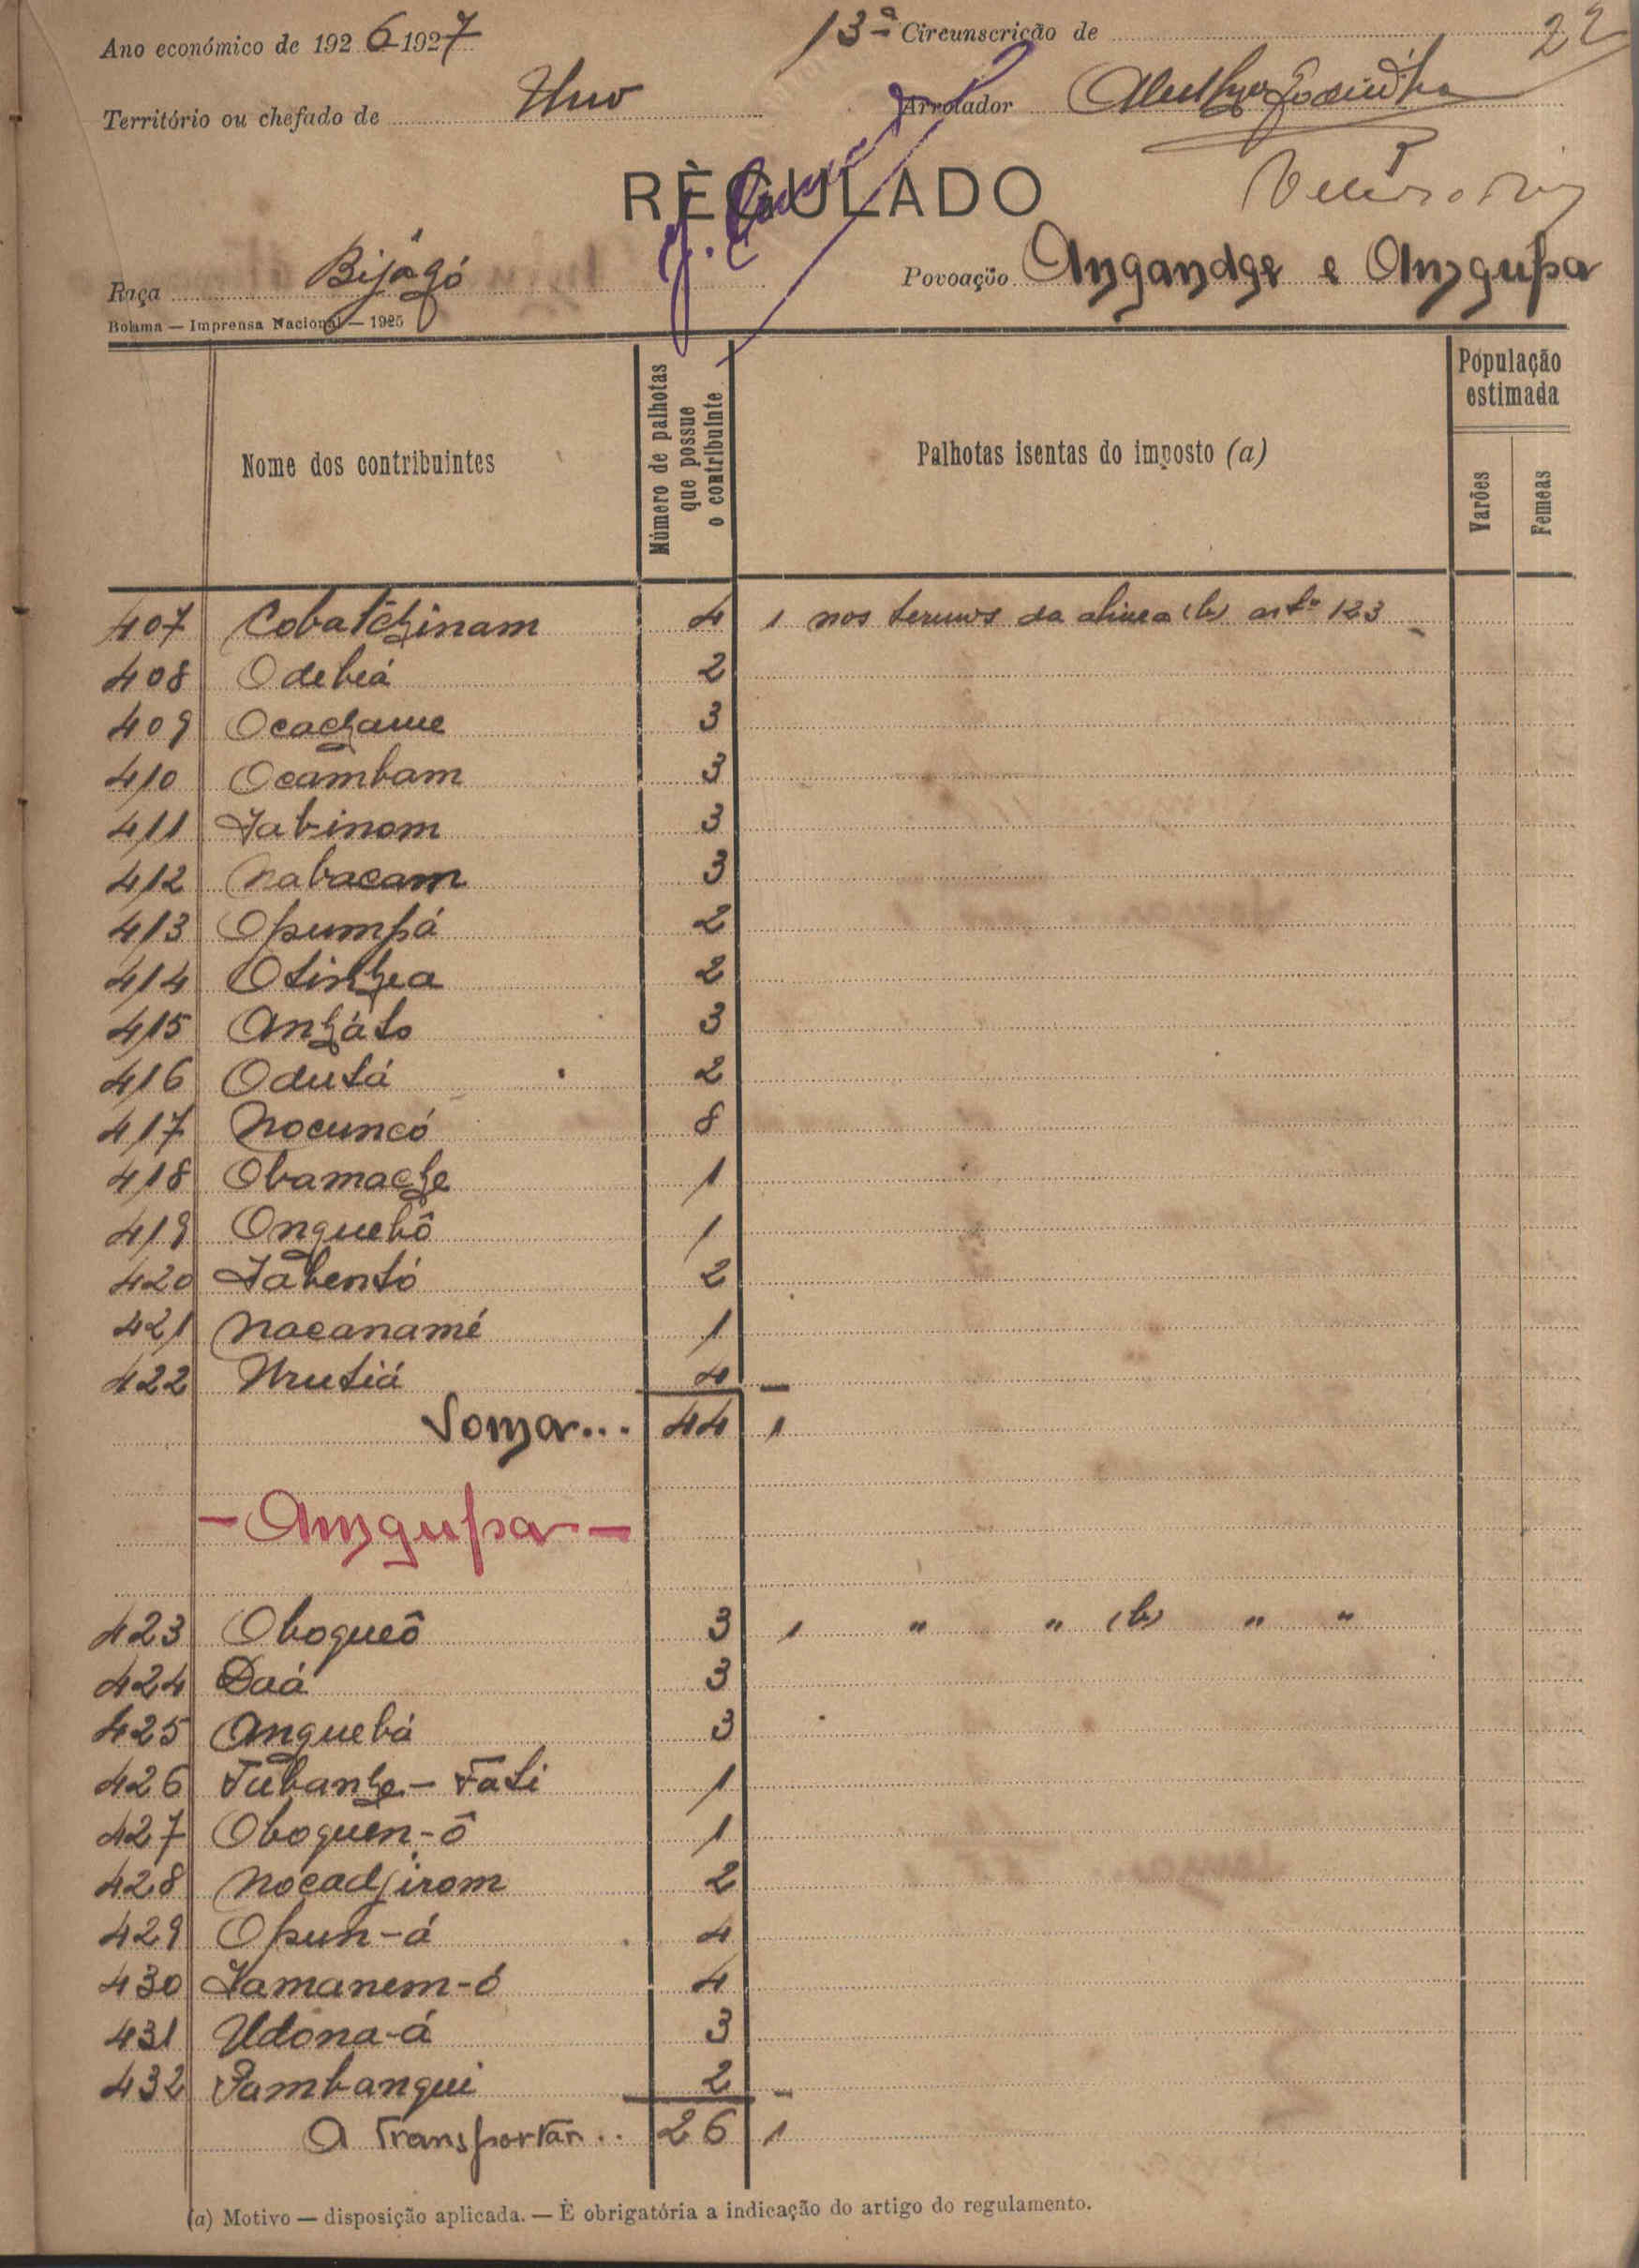 22
Ano económico de 1926-1927 13ª Circunscrição de
Território ou chefado de Uno Arrolador
RÈGULADO
Raça Bijágó Povoação Angandge e Angupa
Bolama — Imprensa Nacional — 1925
Nome dos contribuintes
Número de palhotas que possue o contribuinte
Palhotas isentas do imposto (a)
População estimada
Varões
Femeas
407 Cobatchinam 4 1 nos termos da alinea (b) artº 123
408 Odebiá 2
409 Ocachame 3
410 Ocambam 3
411 Jabinom 3
412 Nabacam 3
413 Opumpá 2
414 Otinhea 2
415 Anháto 3
416 Odutá 2
417 Nocuncó 8
418 Obamache 1
419 Onquebô 1
420 Jabentó 2
421 Nacanamé 1
422 Urutiá 4
Soma... 44 1
- Angupa -
423 Oboqueô 3 1 " " (b) " "
424 Daá 3
425 Anquebá 3
426 Jubanhe - Fati 1
427 Oboquen-ô 1
428 Nocadjirom 2
429 Opun-á 4
430 Jamanem-ó 4
431 Udona-á 3
432 Pambanqui 2
A Transportar.. 26 1
(a) Motivo — disposição aplicada. — È obrigatória a indicação do artigo do regulamento.